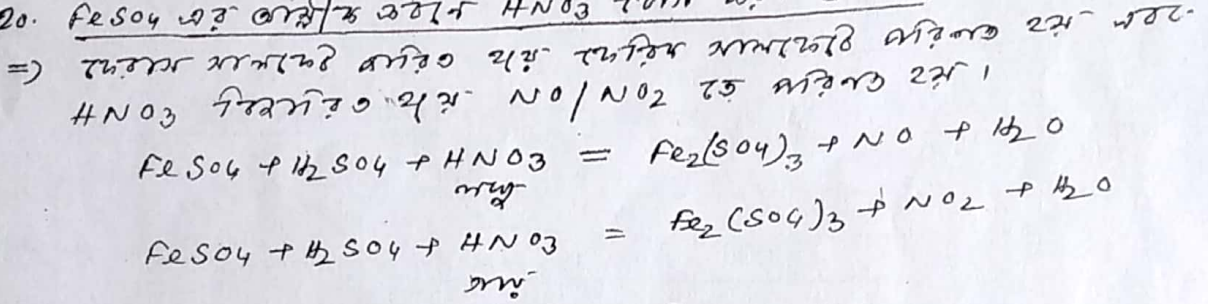 20. FeSO4 এর অম্লীয় দ্রবণে HNO3
=> ফেরাস সালফেট জারিত হয়ে ফেরিক সালফেটে পরিনত হয় এবং
HNO3 বিজারিত হয়ে NO/NO2 তে পরিনত হয়।
FeSO4 + H2SO4 + HNO3 = Fe2(SO4)3 + NO + H2O
লঘু
FeSO4 + H2SO4 + HNO3 = Fe2(SO4)3 + NO2 + H2O
গাঢ়